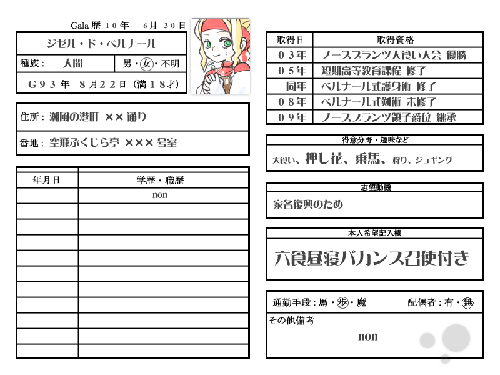 Gala 歴 10 年 6 月 30 日
ジゼル・ド・ベルナール
種族: 人間 男・女・不明
G93 年 8 月 22 日 (満 18 才)
住所: 潮風の港町 ×× 通り
番地: 空飛ふくじら亭 ××× 号室
年月日 学歴・職歴
non
取得日 取得資格
03年 ノースプランツ大食い大会 優勝
05年 短期高等教育課程 修了
同年 ベルナール式護身術 修了
08年 ベルナール式剣術 未修了
09年 ノースプランツ領子爵位 継承
得意分野・趣味など
大食い、押し花、乗馬、狩り、ジョギング
志望動機
家名復興のため
本人希望記入欄
六食昼寝バカンス召使付き
通勤手段: 馬・歩・魔 配偶者: 有・無
その他備考
non